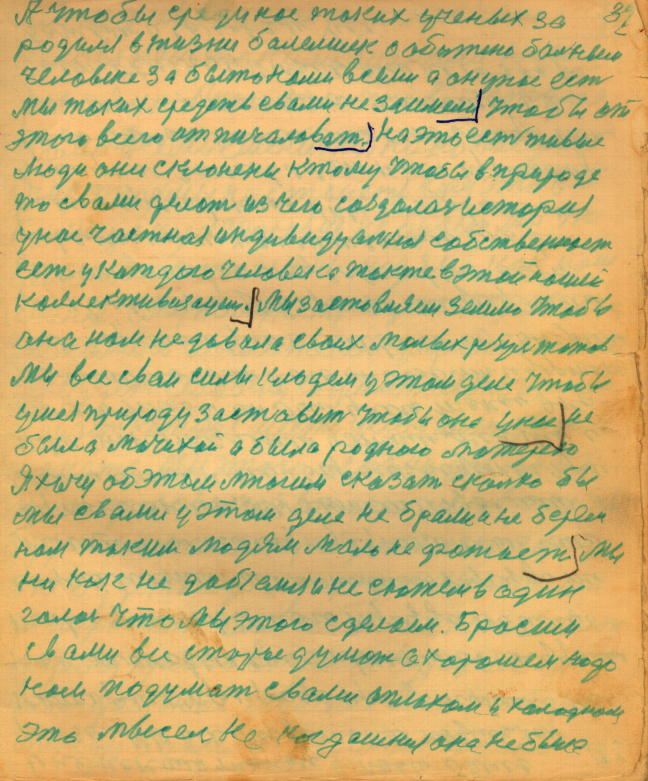 А чтобы среди нас таких ученых за 32
родился в жизни болеющих о обыжено больным
человеке забытоками всеми а он у нас ест
мы таких средств свами не заимели чтобы от
этого всего отпичаловат. На это ест живые
люди они склонени ктому чтобы в природе
то свами делат из чего создалас история
у нас частная индивидуалная собственност
ест укаждого человека тоже в этой нашей
коллективизации. Мы заставляем землю чтобы
она нам не довала своих малых резултатов
Мы все сваи силы кладем у этом деле чтобы
умея природу заставит чтобы она у нас не
была мачихой а была родною матерею
Я хочу об этом многим сказат сколко бы
мы свами у этом деле не брали и не берем
нам таким людям мало не фатает. Мы
ни как не добемся и не скожем в один
голос что мы этого сделаем. Бросим
свами все старое думат о хорошем надо
нам подумат свами оплохом и холодном
это мысел не когдашняя она не была